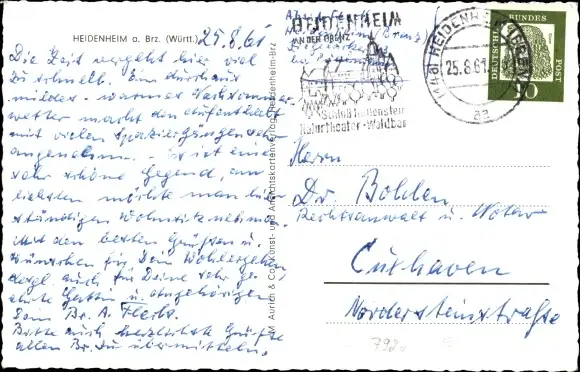 HEIDENHEIM a. Brz. (Württ.) 25.8.61
Die Zeit vergeht hier viel
zu schnell. Ein durchaus
mildes - warmes Nachsommer-
wetter macht den Aufenthalt
mit vielen Spaziergängen sehr
angenehm. Es ist eine
sehr schöne Gegend, am
liebsten möchte man hier
ständigen Wohnsitz nehmen.
Mit den besten Grüßen u.
Wünschen für Dein Wohlergehen
desgl. auch für Deine sehr ge-
ehrte Gattin u. Angehörigen
Dein Br. A.
Bitte auch herzlichste Grüße
allen Br. zu übermitteln.
M. Aurich & Co., Kunst- und Ansichtskartenverlag, Heidenheim-Brz
HEIDENHEIM
AN DER BRENZ
Schloß Hellenstein
Naturtheater · Waldbad
HEIDENHEIM (BRENZ)
25.8.61
aa
DEUTSCHE BUNDESPOST
Herrn
Dr. Bohlen
Rechtsanwalt u. Notar
Cuxhaven
Nordersteinstraße